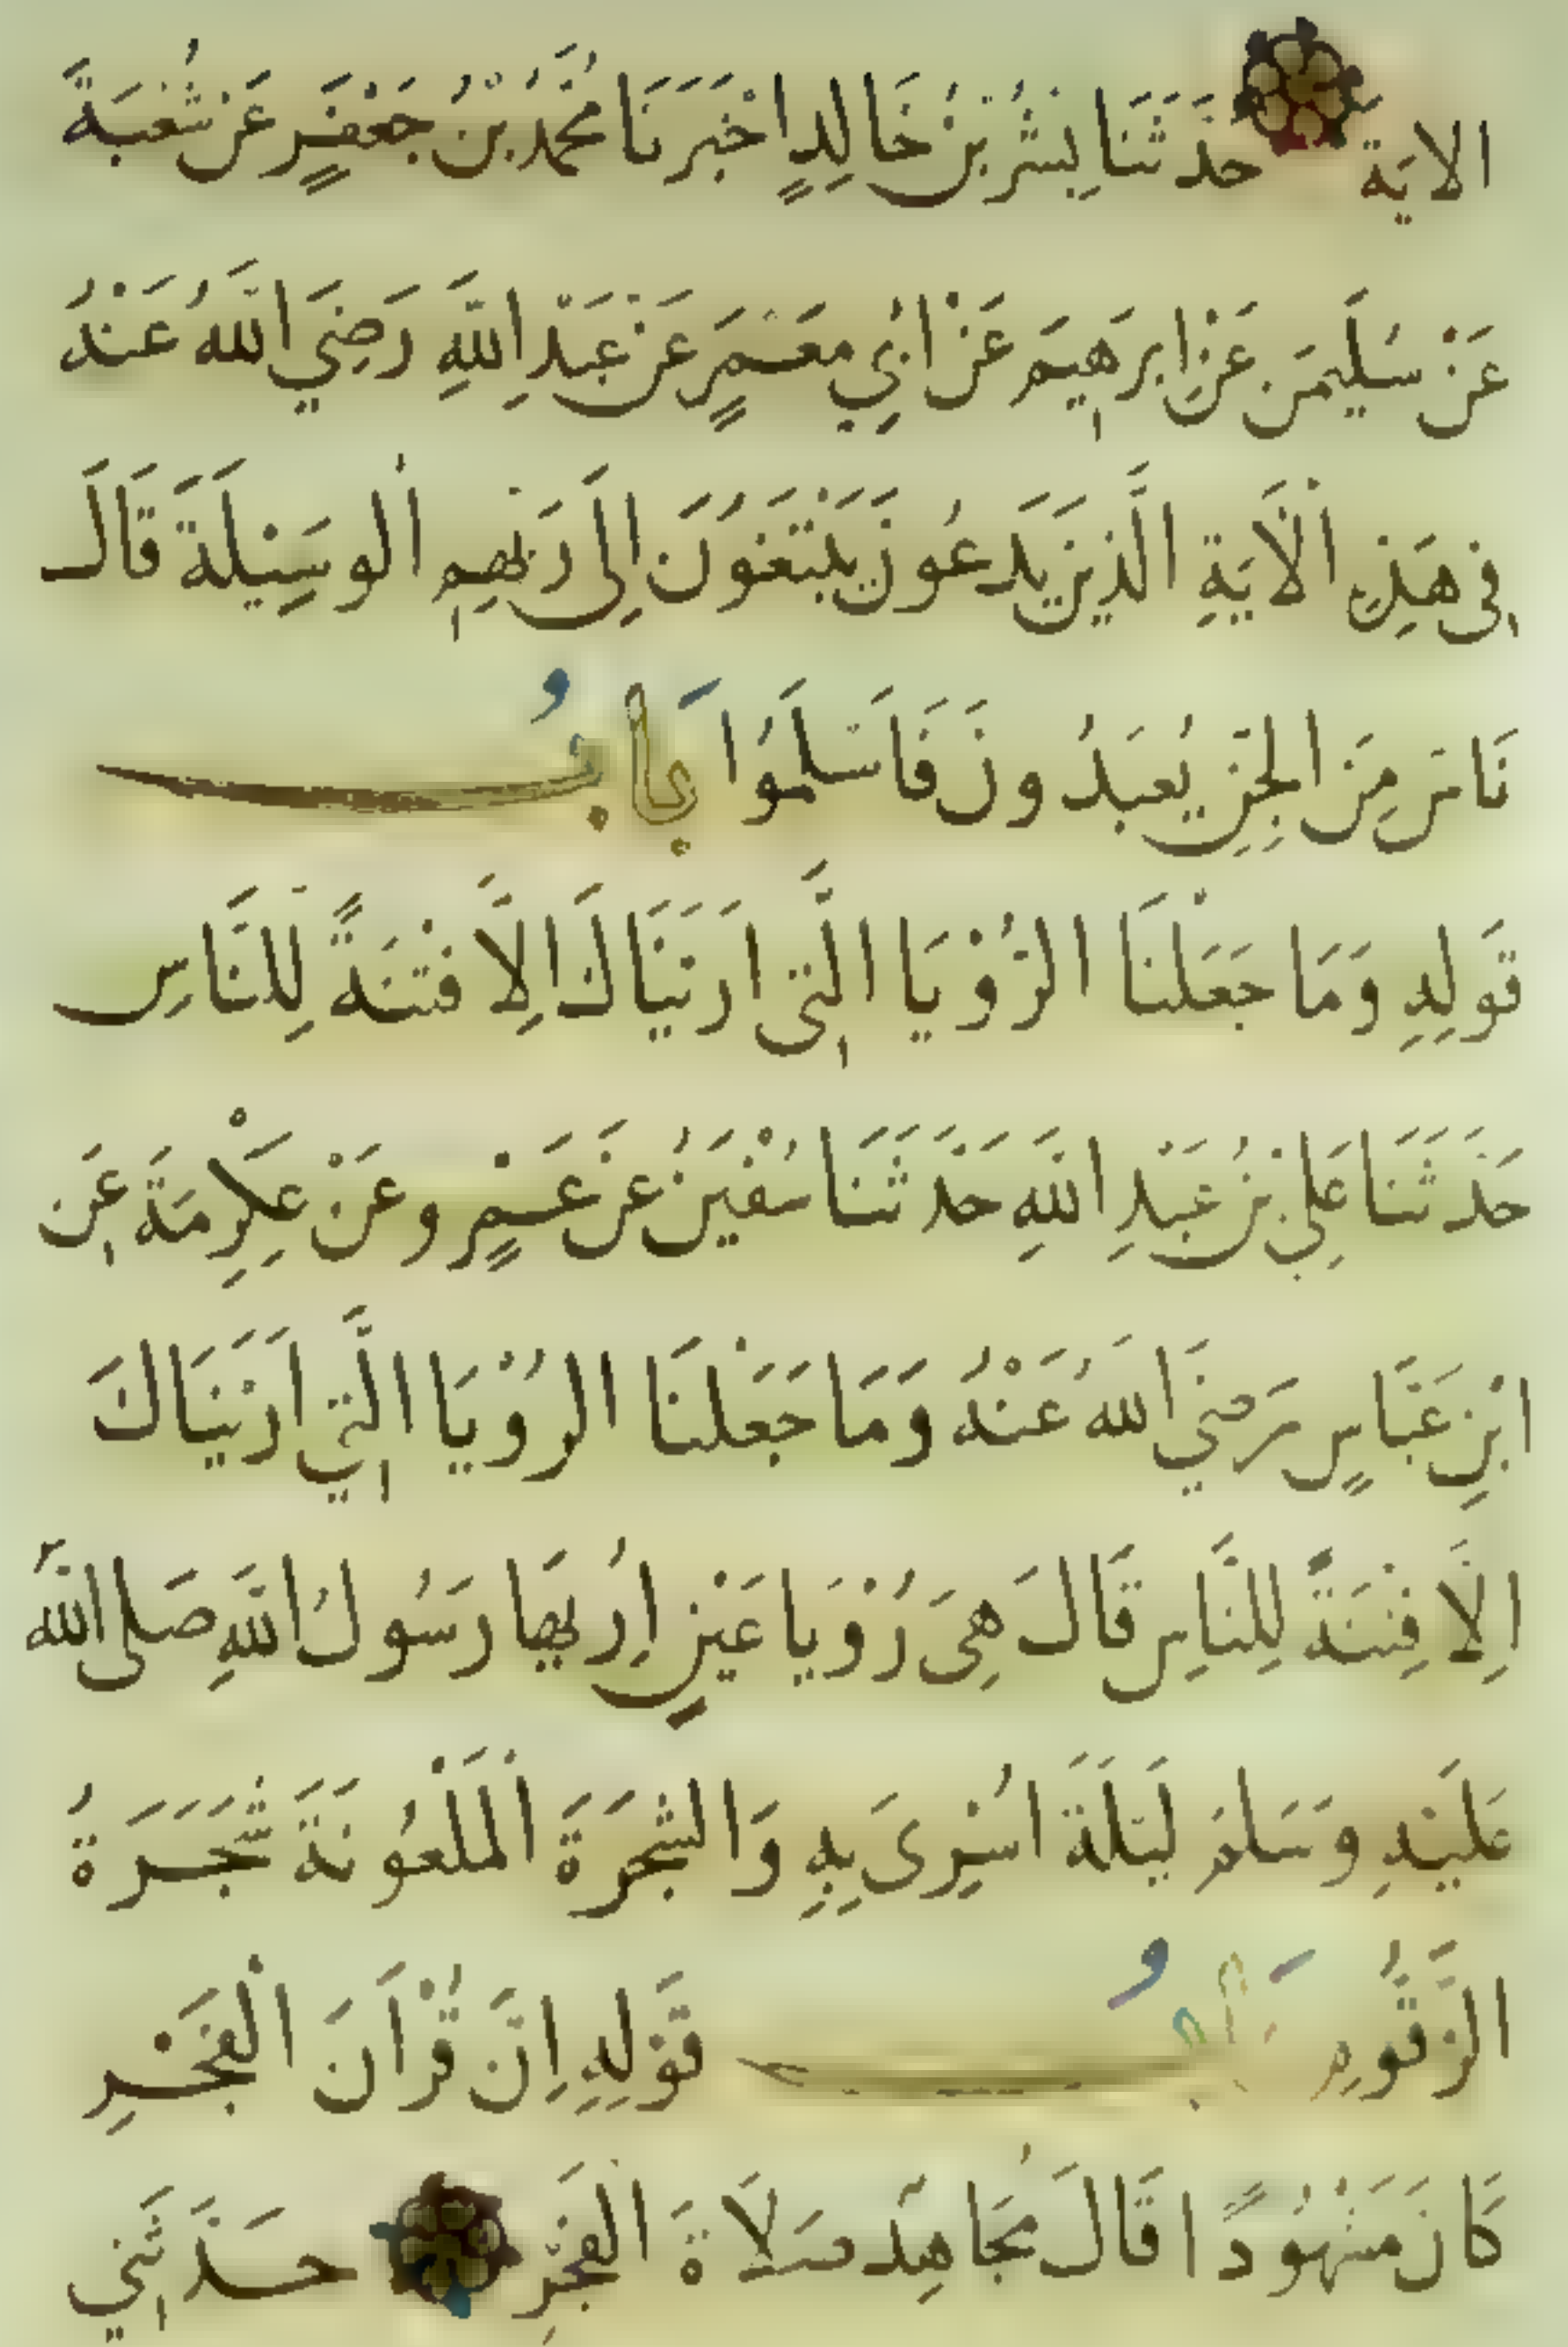 الاية حَدَّثَنَا بِشْرُ بْنُ خَالِدٍ اَخْبَرَنَا مُحَمَّدُ بْنُ جَعْفَرٍ عَنْ شُعْبَةَ
عَنْ سُلَيْمَنَ عَنْ اِبْرَهِيمَ عَنْ اَبِي مَعْمَرٍ عَنْ عَبْدِ اللَّهِ رَضِيَ اللَّهُ عَنْهُ
فِي هَذِهِ الْاَيَةِ الَّذِينَ يَدْعُونَ يَبْتَغُونَ اِلَى رَبِّهِمِ الْوَسِيْلَةَ قَالَ
نَاسٌ مِنَ الْجِنِّ يُعْبَدُونَ فَاَسْلَمُوا بَابُ
قَولِهِ وَمَا جَعَلْنَا الرُّؤْيَا الَّتِي اَرَيْنَاكَ اِلَّا فِتْنَةً لِلنَّاسِ
حَدَّثَنَا عَلِيُّ بْنُ عَبْدِ اللَّهِ حَدَّثَنَا سُفْيَنُ عَنْ عَمْرٍو عَنْ عِكْرِمَةَ عَنِ
ابْنِ عَبَّاسٍ رَضِيَ اللَّهُ عَنْهُ وَمَا جَعَلْنَا الرُؤْيَا الَّتِي اَرَيْنَاكَ
اِلَّا فِتْنَةً لِلنَّاسِ قَالَ هِيَ رُؤْيَا عَيْنٍ اُرِيَهَا رَسُولُ اللَّهِ صَلَى اللَّهُ
عَلَيْهِ وَسَلَمَ لَيْلَةَ اُسْرِىَ بِهِ وَالشَّجَرَةَ الْمَلْعُونَةَ شَجَرَةُ
الزَّقُّومِ بَابُ قَوْلِهِ اِنَّ قُرْاَنَ الْفَجْرِ
كَانَ مَشْهُودًا قَالَ مُجَاهِدٌ صَلَاةَ الْفَجْرِ حَدَّثَنِي